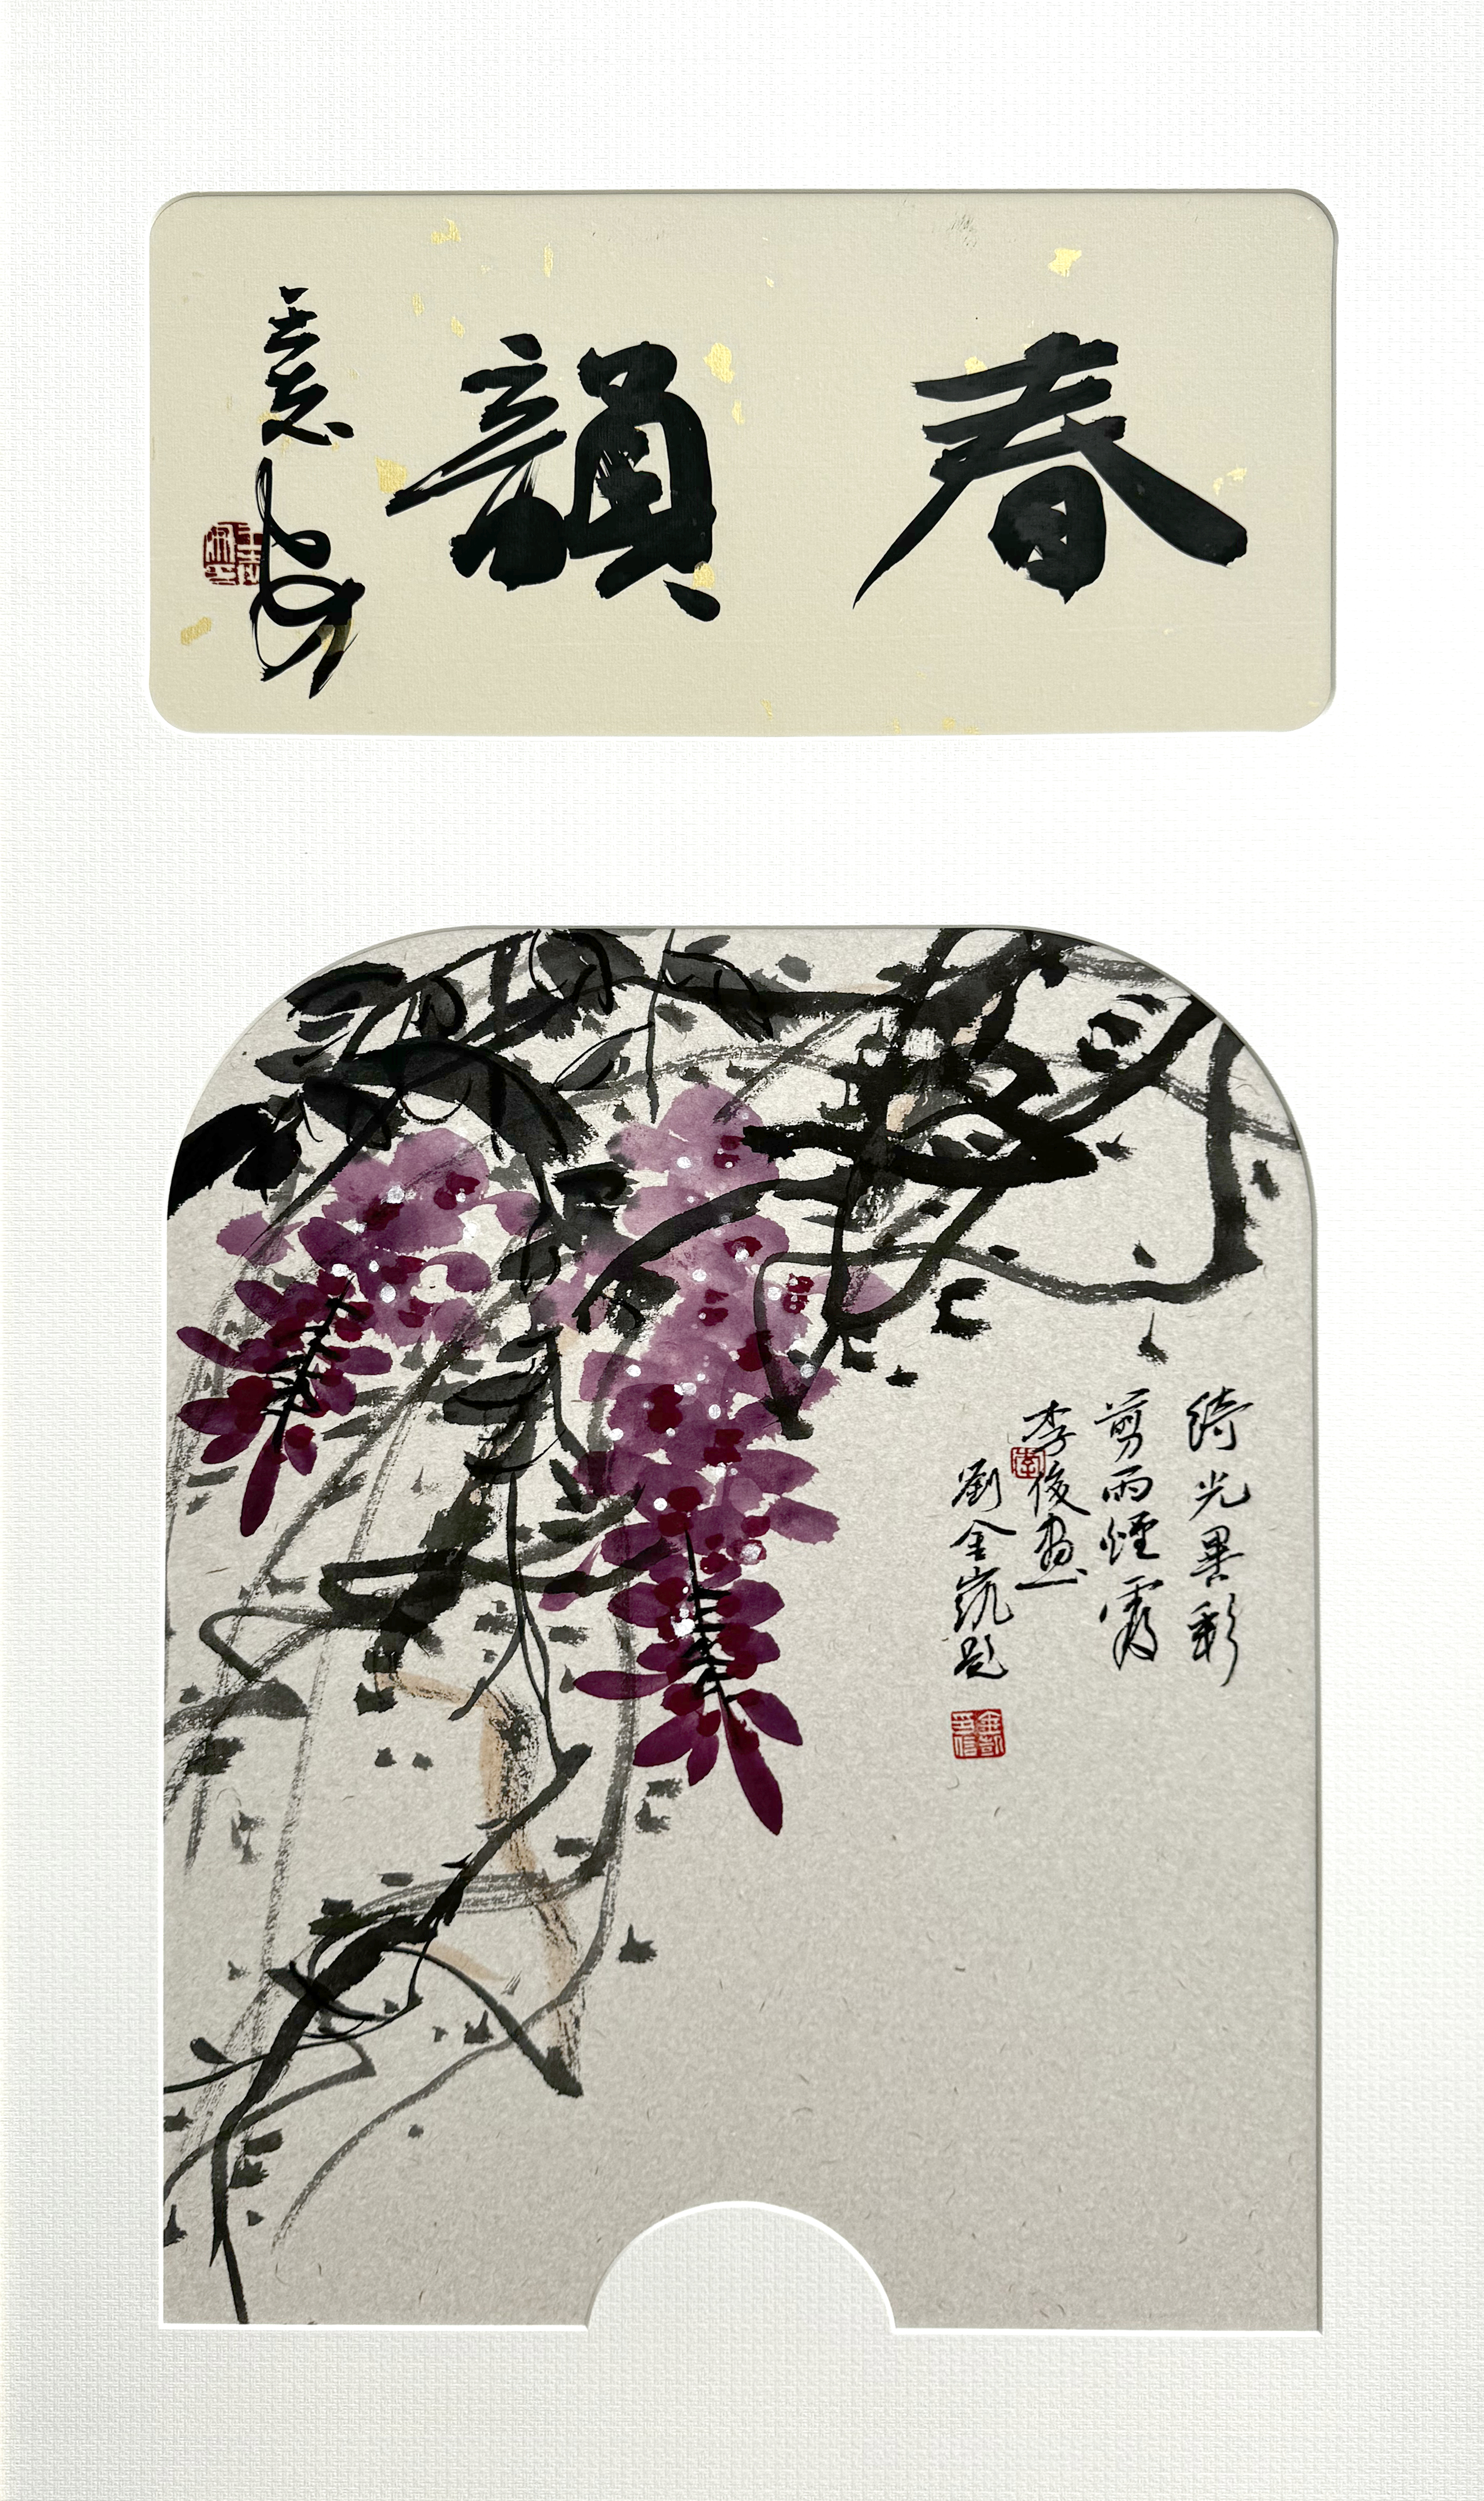 春韻
綺光異彩
剪雨煙霞
李俊畫
劉金凱題